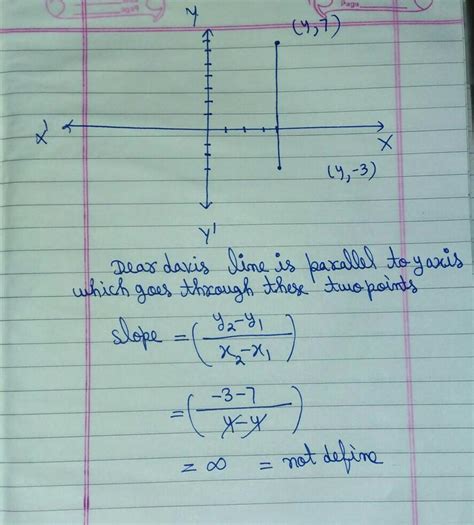 Page
Y
(4,7)
X'
X
(4,-3)
Y'
Dear davis line is parallel to yaxis
which goes through these two points
slope = (y₂-y₁ / x₂-x₁)
= (-3-7 / 4-4)
= ∞ = not define